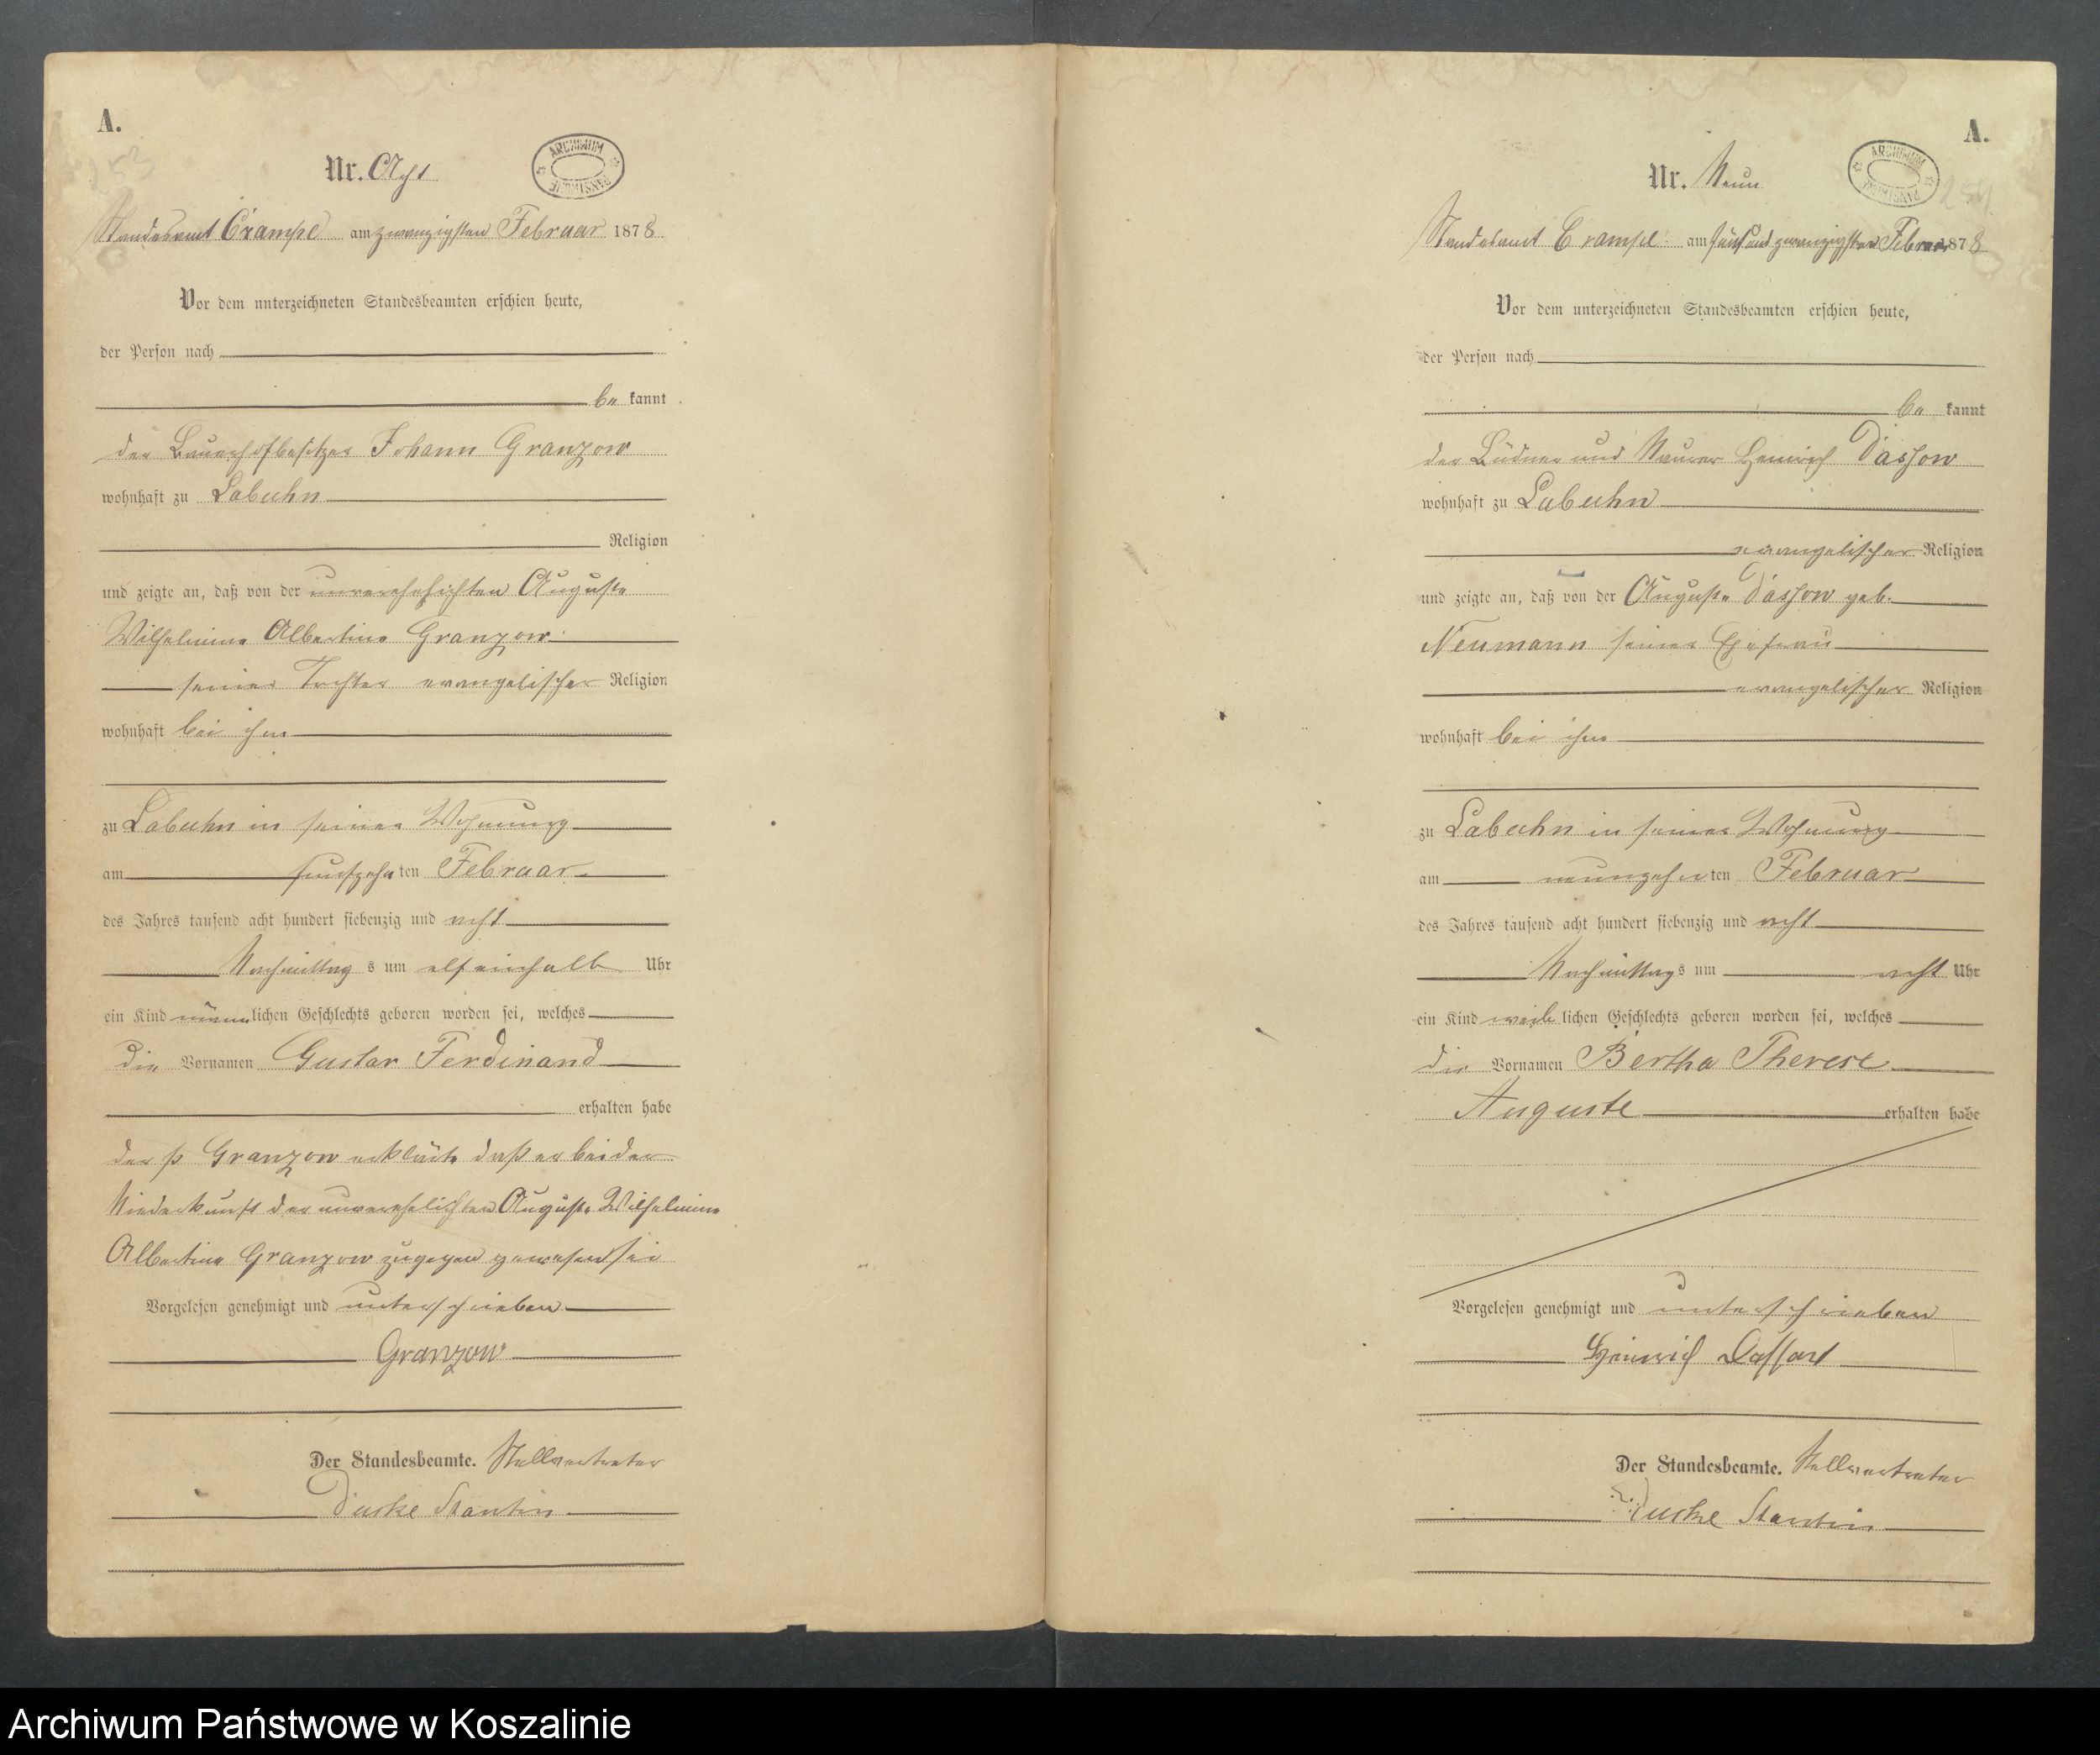 A.
253
Nr. Acht
ARCHIWUM PAŃSTWOWE
Standesamt Crampe am zwanzigsten Februar 1878
Vor dem unterzeichneten Standesbeamten erschien heute,
der Person nach
be kannt
der Bauerhofbesitzer Johann Granzow
wohnhaft zu Labuhn
Religion
und zeigte an, daß von der unverehelichten Auguste
Wilhelmine Albertine Granzow
seiner Tochter evangelischer Religion
wohnhaft bei ihm
zu Labuhn in seiner Wohnung
am fünfzehnten Februar
des Jahres tausend acht hundert siebenzig und acht
Nachmittags um elfeinhalb Uhr
ein Kind männlichen Geschlechts geboren worden sei, welches
die Vornamen Gustav Ferdinand
erhalten habe
der p Granzow erklärte daß er bei der
Niederkunft der unverehelichten Auguste Wilhelmine
Albertine Granzow zugegen gewesen sei
Vorgelesen genehmigt und unterschrieben
Granzow
Der Standesbeamte. Stellvertreter
A.
254
Nr. Neun
ARCHIWUM PAŃSTWOWE
Standesamt Crampe am fünfundzwanzigsten Februar 1878
Vor dem unterzeichneten Standesbeamten erschien heute,
der Person nach
be kannt
der Büdner und Maurer Heinrich Dassow
wohnhaft zu Labuhn
evangelischer Religion
und zeigte an, daß von der Auguste Dassow geb.
Neumann seiner Ehefrau
evangelischer Religion
wohnhaft bei ihm
zu Labuhn in seiner Wohnung
am neunzehnten Februar
des Jahres tausend acht hundert siebenzig und acht
Nachmittags um acht Uhr
ein Kind weiblichen Geschlechts geboren worden sei, welches
die Vornamen Bertha Therese
Auguste erhalten habe
Vorgelesen genehmigt und unterschrieben
Heinrich Dassow
Der Standesbeamte. Stellvertreter
Archiwum Państwowe w Koszalinie